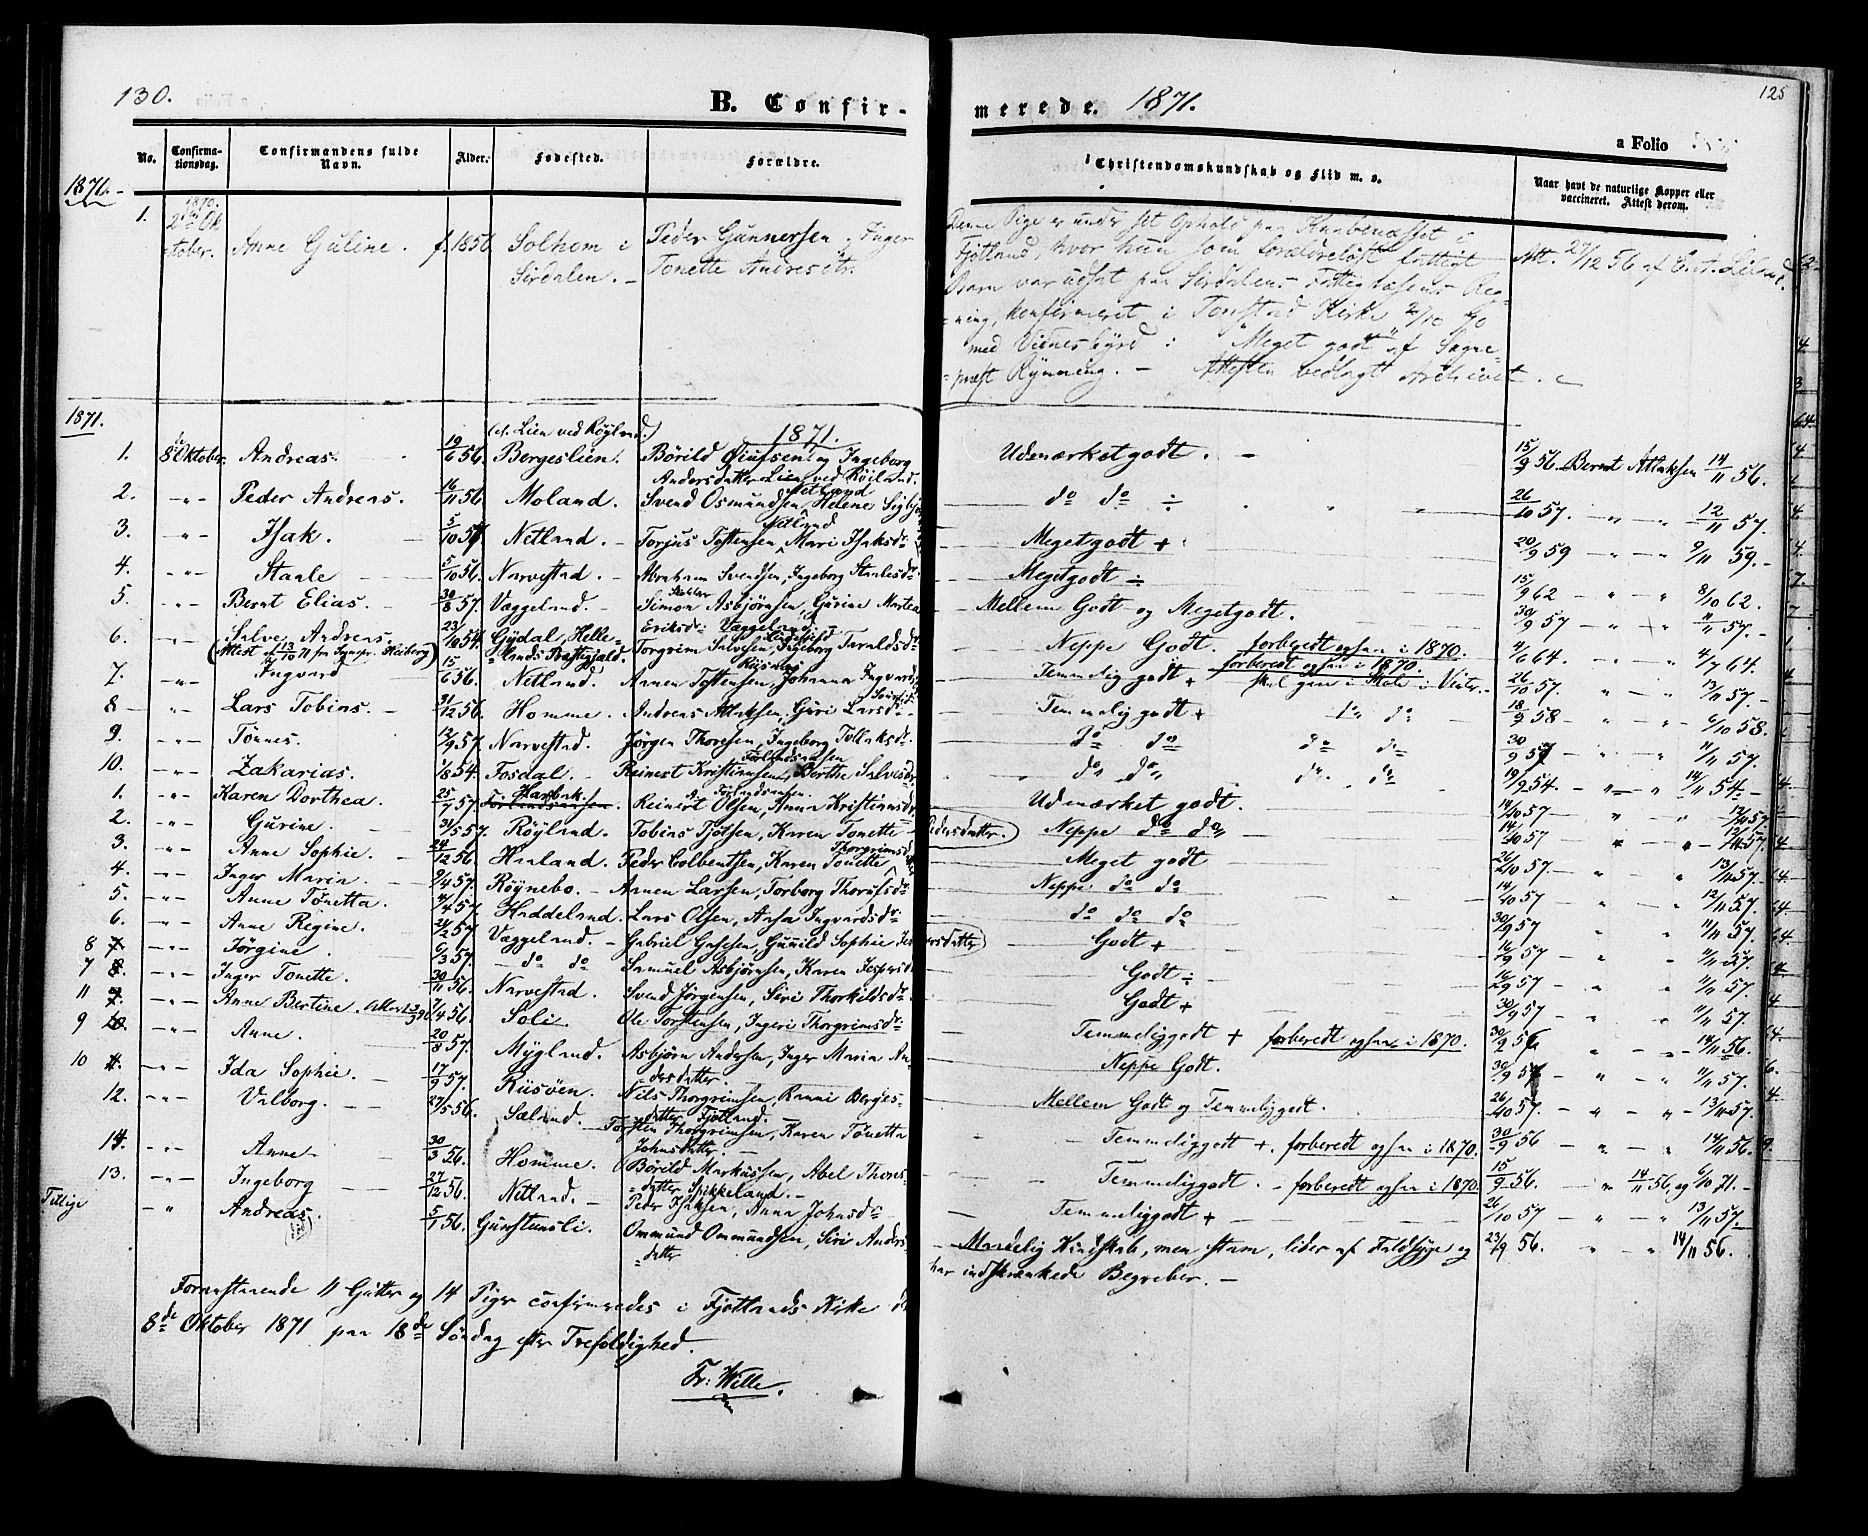 130.
B. Confir-
No. Confirma-tionsdag. Confirmandens fulde Navn. Alder. Fødested. Forældre.
1871.
1. 1870. 2den Oktober. Anne Guline. f. 1856 Solhom i Sirdalen. Peder Gunnersen og Inger Tonette Andresdtr.
1871.
(el. Lien ved Røyland.) 1871.
1. 8de Oktober. Andreas. 19/6 56. Bergeslien. Børild Sivfsen og Ingeborg Andersdatter Lien ved Röiland.
2. -"- Peder Andreas. 16/11 56. Moland. Svend Osmundsen, Helene Sigbj Netland
3. -"- Isak. 5/10 57. Netland. Torjus Tostensen, Mari Isaksdr Netland
4. -"- Staale 5/10 56. Narvestad. Abraham Svendsen, Ingeborg Staalesdr
5. -"- Bernt Elias. 30/8 57. Væggeland. Simon Asbjørnsen, Gurine Martea Eriksdr Væggeland.
6. -"- Salve Andreas. 23/10 54. Gydal, Helle-lands Præstegjæld. Torgrim Salvesen, Ingeborg Taraldsdr
(Attest af 13/10 71 fra Sognepr. Skeiberg)
7. -"- Ingvard 15/6 56. Netland. Aanen Tostensen, Johanna Ingvardsdr Risnes
8 -"- Lars Tobias. 31/12 56. Homme. Andreas Atlaksen, Guri Larsdr
9. -"- Tønnes. 12/9 57. Narvestad. Jørgen Thoresen, Ingeborg Tollaksdr
10. -"- Zakarias. 1/8 54. Fosdal. Reinert Kristiansen, Berthe Salvesdr
1. -"- Karen Dorthea. 25/9 57. Haabak. Reinert Olsen, Anna Kristiansdr
2. -"- Gurine. 31/5 57. Røyland. Tobias Tjøtsen, Karen Tonette
3. -"- Anne Sophie. 24/12 56. Haaland. Peder Colbentsen, Karen Tonette Thorgrimsdr
4. -"- Inger Maria. 9/4 57. Røynebo. Aanen Larsen, Torborg Thorufsdr
5. -"- Anne Tonetta. 4/4 57. Haddeland. Lars Olsen, Aasa Ingvardsdr
6. -"- Anne Regine. 21/2 57. Væggeland. Gabriel Gusesen, Gunild Sophie Jes
8 7. -"- Jørgine. 6/3 57. do do Samuel Asbjørnsen, Karen Jespersd
7 8. -"- Inger Tonette. 30/11 56. Narvestad. Svend Jørgensen, Siri Thorkildsdr
11 -"- Anne Bertine. 7/4 56. Soli. Ole Torstensen, Ingeri Thorgrimsdr
9 -"- Anne. 20/8 57. Mygland. Asbjørn Andersen, Inger Maria Andersdatter.
10 -"- Ida Sophie. 17/9 57. Risøen. Nils Thorgrimsen, Ranni Berges-datter Fjotland.
12. -"- Valborg. 27/5 56. Sæland. Torsten Thorgrimsen, Karen Tonetta Johnsdatter.
14. -"- Anne 30/3 56. Homme. Børild Markussen, Abel Thores-datter Spikkeland.
13. -"- Ingeborg 27/12 56. Netland. Peder Isaksen, Anna Johnsdr
Tillige " Andreas. 5/7 56. Gunstensli. Ommund Ommundsen, Siri Anders-datter
Foranstaaende 11 Gutter og 14 Piger confirmeredes i Fjotlands Kirke d.
8de Oktober 1871 paa 18de Søndag efter Trefoldighed.
Fr: Wille.
125
merede. 1871.
a Folio
i Christendomskundskab og Flid m. v. Naar havt de naturlige Kopper eller vaccineret. Attest derom.
Denne Pige er under sit Ophold paa Knabenæsset i
Fjotland, hvor hun som forældreløst fattigt Att. 27/12 56 af Ent. Leland.
Barn var udsat paa Sirdalens Fattigkasens Reg-
ning, konfirmeret i Tonstad Kirke 2/10 70
med Vidnesbyrd: "Meget godt" af Sogne-
præst Rynning. - Attesten vedlagt Archivet.
Udmærket godt. 15/9 56. Bernt Atlaksen 14/11 56.
do do ÷ 26/10 57. " " 12/11 57.
Megetgodt + 20/9 59 " " 9/11 59.
Megetgodt ÷ 15/9 62 " " 8/10 62.
Mellem Godt og Megetgodt. 30/9 57 " " 11/11 57.
Neppe Godt. forberedt ogsaa i 1870. 4/6 64. " " 4/7 64.
Temmelig godt + forberedt ogsaa i 1870. skal gaa i Skole i Vinter. 26/10 57. " " 13/11 57.
Temmelig godt + do do 18/9 58 " " 6/10 58.
do do do do 30/9 57 " " 11/11 57.
do do do do 19/9 54. " " 14/11 54.
Udmærket godt. 14/10 57 " " 12/11 57
Pedersdatter. Neppe do do 14/10 57 " " 12/11 57.
Meget godt 26/10 57. " " 13/11 57.
Neppe do do 14/10 57 " " 12/11 57.
do do do 30/9 57 " " 11/11 57.
persdatter Godt + 16/9 57. " " 11/11 57.
Godt ÷ 16/9 57. " " 11/11 57.
Godt + 30/9 57. " " 11/11 57.
Temmeliggodt + forberedt ogsaa i 1870. 30/9 56 " " 14/11 56.
Neppe Godt. 30/9 57 " " 11/11 57.
Mellem Godt og Temmeliggodt. 26/10 57. " " 13/11 57.
Temmeliggodt +. forberedt ogsaa i 1870. 30/9 56 " " 14/11 56.
Temmeliggodt. - forberedt ogsaa i 1870 15/9 56. " 14/11 56 og 6/10 71.
Temmeliggodt + 26/10 57 " " 13/11 57.
Maadelig Kundskab, men stam, lider af Faldsyge og 23/9 56. " " 14/11 56.
har indskrænkede Begreber. -